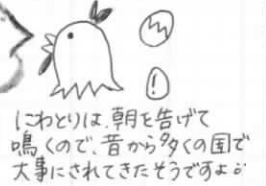 !
にわとりは、朝を告げて
鳴くので、昔から多くの国で
大事にされてきたそうですよ